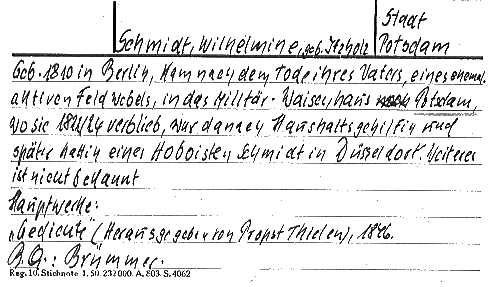 Schmidt, Wilhelmine, geb. Itzholz
Staat
Potsdam
Geb. 1810 in Berlin, kam nach dem Tode ihres Vaters, eines ehemal.
aktiven Feldwebels, in das Militär-Waisenhaus nach Potsdam,
wo sie 1821/24 verblieb, war danach Haushaltsgehilfin und
später Gattin eines Hoboisten Schmidt in Düsseldorf. Weiteres
ist nicht bekannt
Hauptwerke:
"Gedichte" (Herausgegeben von Propst Thielen), 1846.
B.Q.: Brümmer.
Reg. 10. Stichnote 1, 50. 232000. A. 803. S. 4062